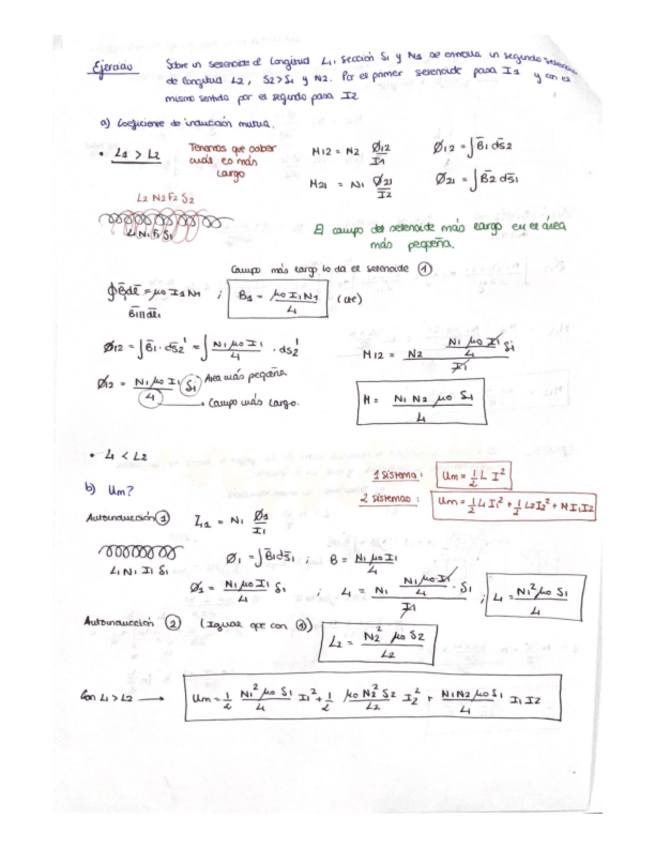 Ejercicio Sobre un solenoide de longitud L1, sección S1 y N1 se enrolla un segundo solenoide
de longitud L2, S2>S1 y N2. Por el primer solenoide pasa I1 y con el
mismo sentido por el segundo pasa I2
a) Coeficiente de inducción mutua.
• L1 > L2
Tenemos que saber
cuál es más
largo
M12 = N2 Ø12/I1
Ø12 = ∫B̄1 ds̄2
M21 = N1 Ø21/I2
Ø21 = ∫B̄2 ds̄1
L2 N2 I2 S2
L1 N1 I1 S1
El campo del solenoide más largo en el área
más pequeña.
Campo más largo lo da el solenoide ①
∮B̄dl̄ = μo I1 N1 ; B1 = μo I1 N1/L1 (cte)
B̄1||dl̄1
Ø12 = ∫B̄1 · ds̄2 = ∫ N1 μo I1/L1 · ds2
M12 = N2 (N1 μo I1/L1 S1)/I1
Ø12 = N1 μo I1/L1 S1
Área más pequeña
Campo más largo.
M = N1 N2 μo S1/L1
• L1 < L2
b) Um?
1 sistema: Um = 1/2 L I²
2 sistemas: Um = 1/2 L1 I1² + 1/2 L2 I2² + M I1 I2
Autoinducción ① L1 = N1 Ø1/I1
L1 N1 I1 S1
Ø1 = ∫B̄1 ds̄1 ; B = N1 μo I1/L1
Ø1 = N1 μo I1/L1 S1 ; L1 = N1 (N1 μo I1/L1 · S1)/I1 ; L1 = N1² μo S1/L1
Autoinducción ② (Igual que con ①) L2 = N2² μo S2/L2
Con L1 > L2 → Um = 1/2 N1² μo S1/L1 I1² + 1/2 μo N2² S2/L2 I2² + N1 N2 μo S1/L1 I1 I2